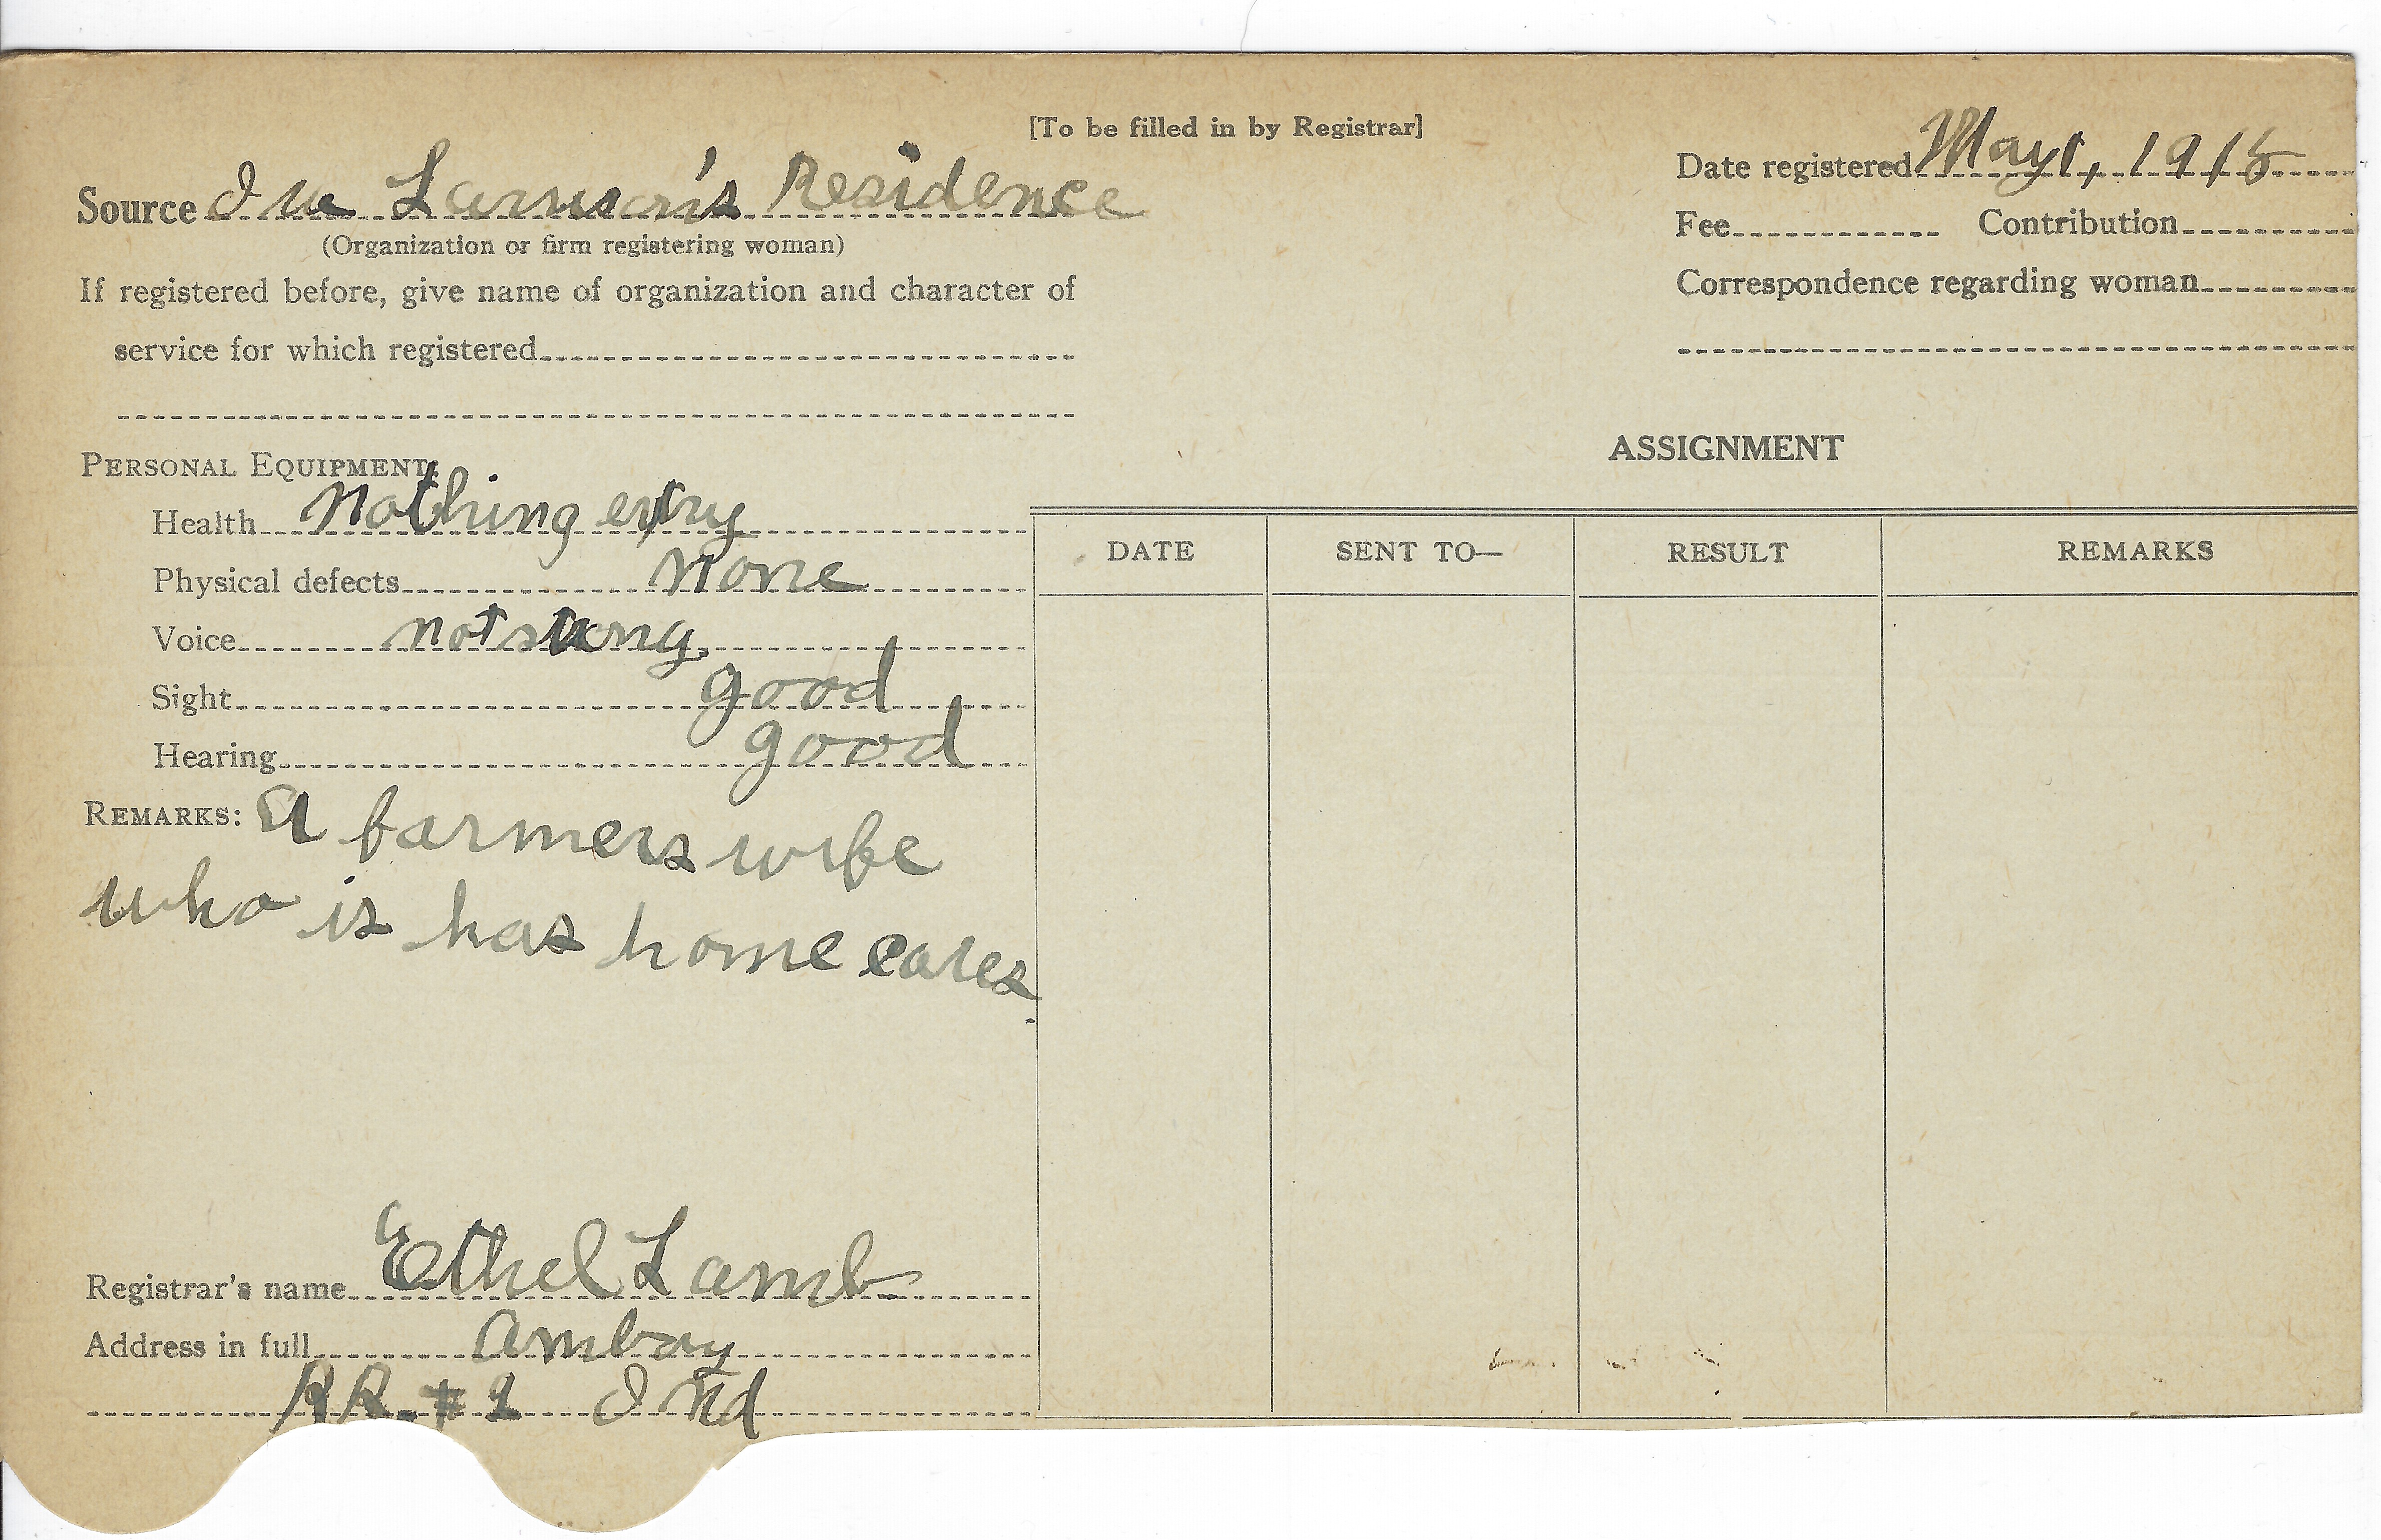 [To be filled in by Registrar]
Date registered May 1, 1918
Source Ira Larmon's Residence
(Organization or firm registering woman)
Fee Contribution
If registered before, give name of organization and character of
Correspondence regarding woman
service for which registered
ASSIGNMENT
PERSONAL EQUIPMENT:
Health Nothing
Physical defects none
Voice not strong.
Sight good
Hearing good
DATE SENT TO— RESULT REMARKS
REMARKS: A farmers wife
who is has home cares
Registrar's name Ethel Lamb
Address in full Amboy
RR. #1 Ind